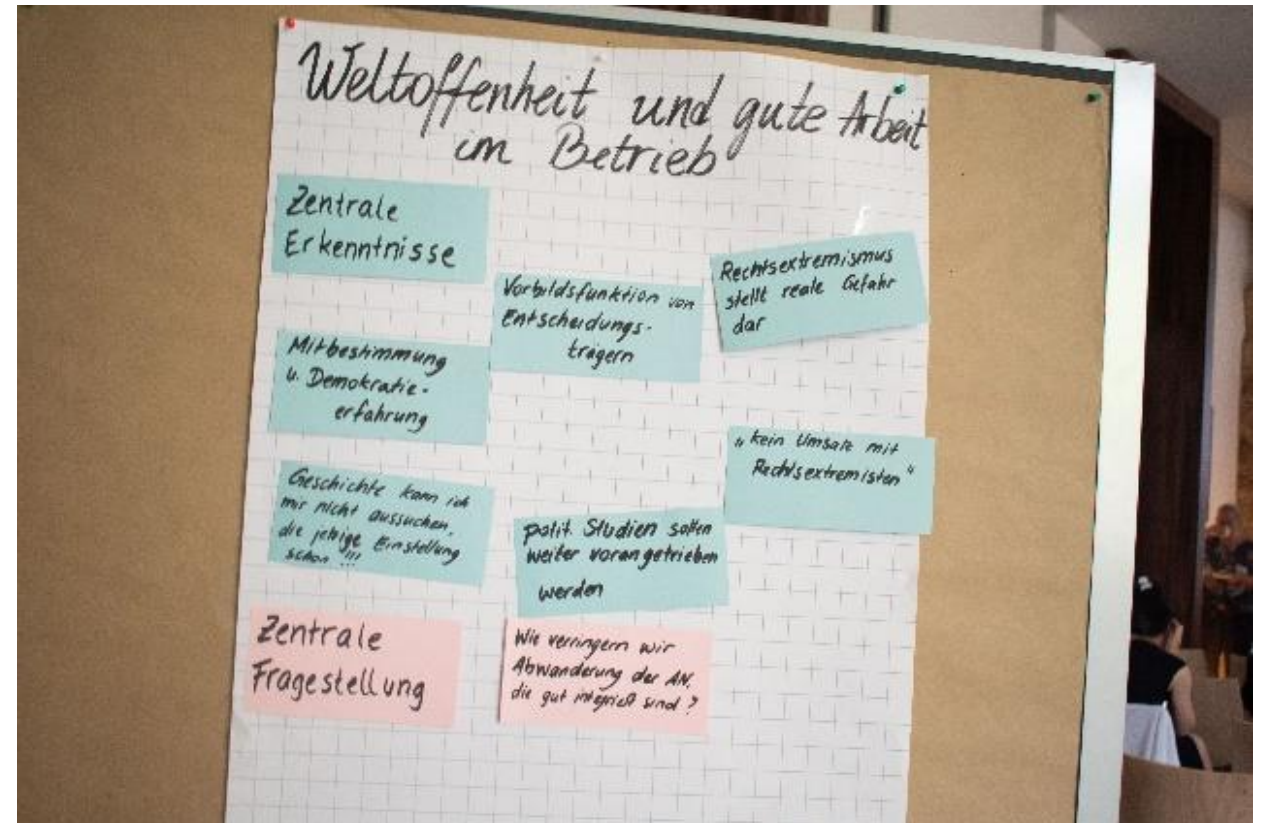 Weltoffenheit und gute Arbeit
im Betrieb
Zentrale
Erkenntnisse
Vorbildsfunktion von
Entscheidungs-
trägern
Rechtsextremismus
stellt reale Gefahr
dar
Mitbestimmung
u. Demokratie-
erfahrung
„kein Umsatz mit
Rechtsextremisten“
Geschichte kann ich
mir nicht aussuchen,
die jetzige Einstellung
schon !!!
polit. Studien sollten
weiter vorangetrieben
werden
Zentrale
Fragestellung
Wie verringern wir
Abwanderung der AN,
die gut integriert sind ?